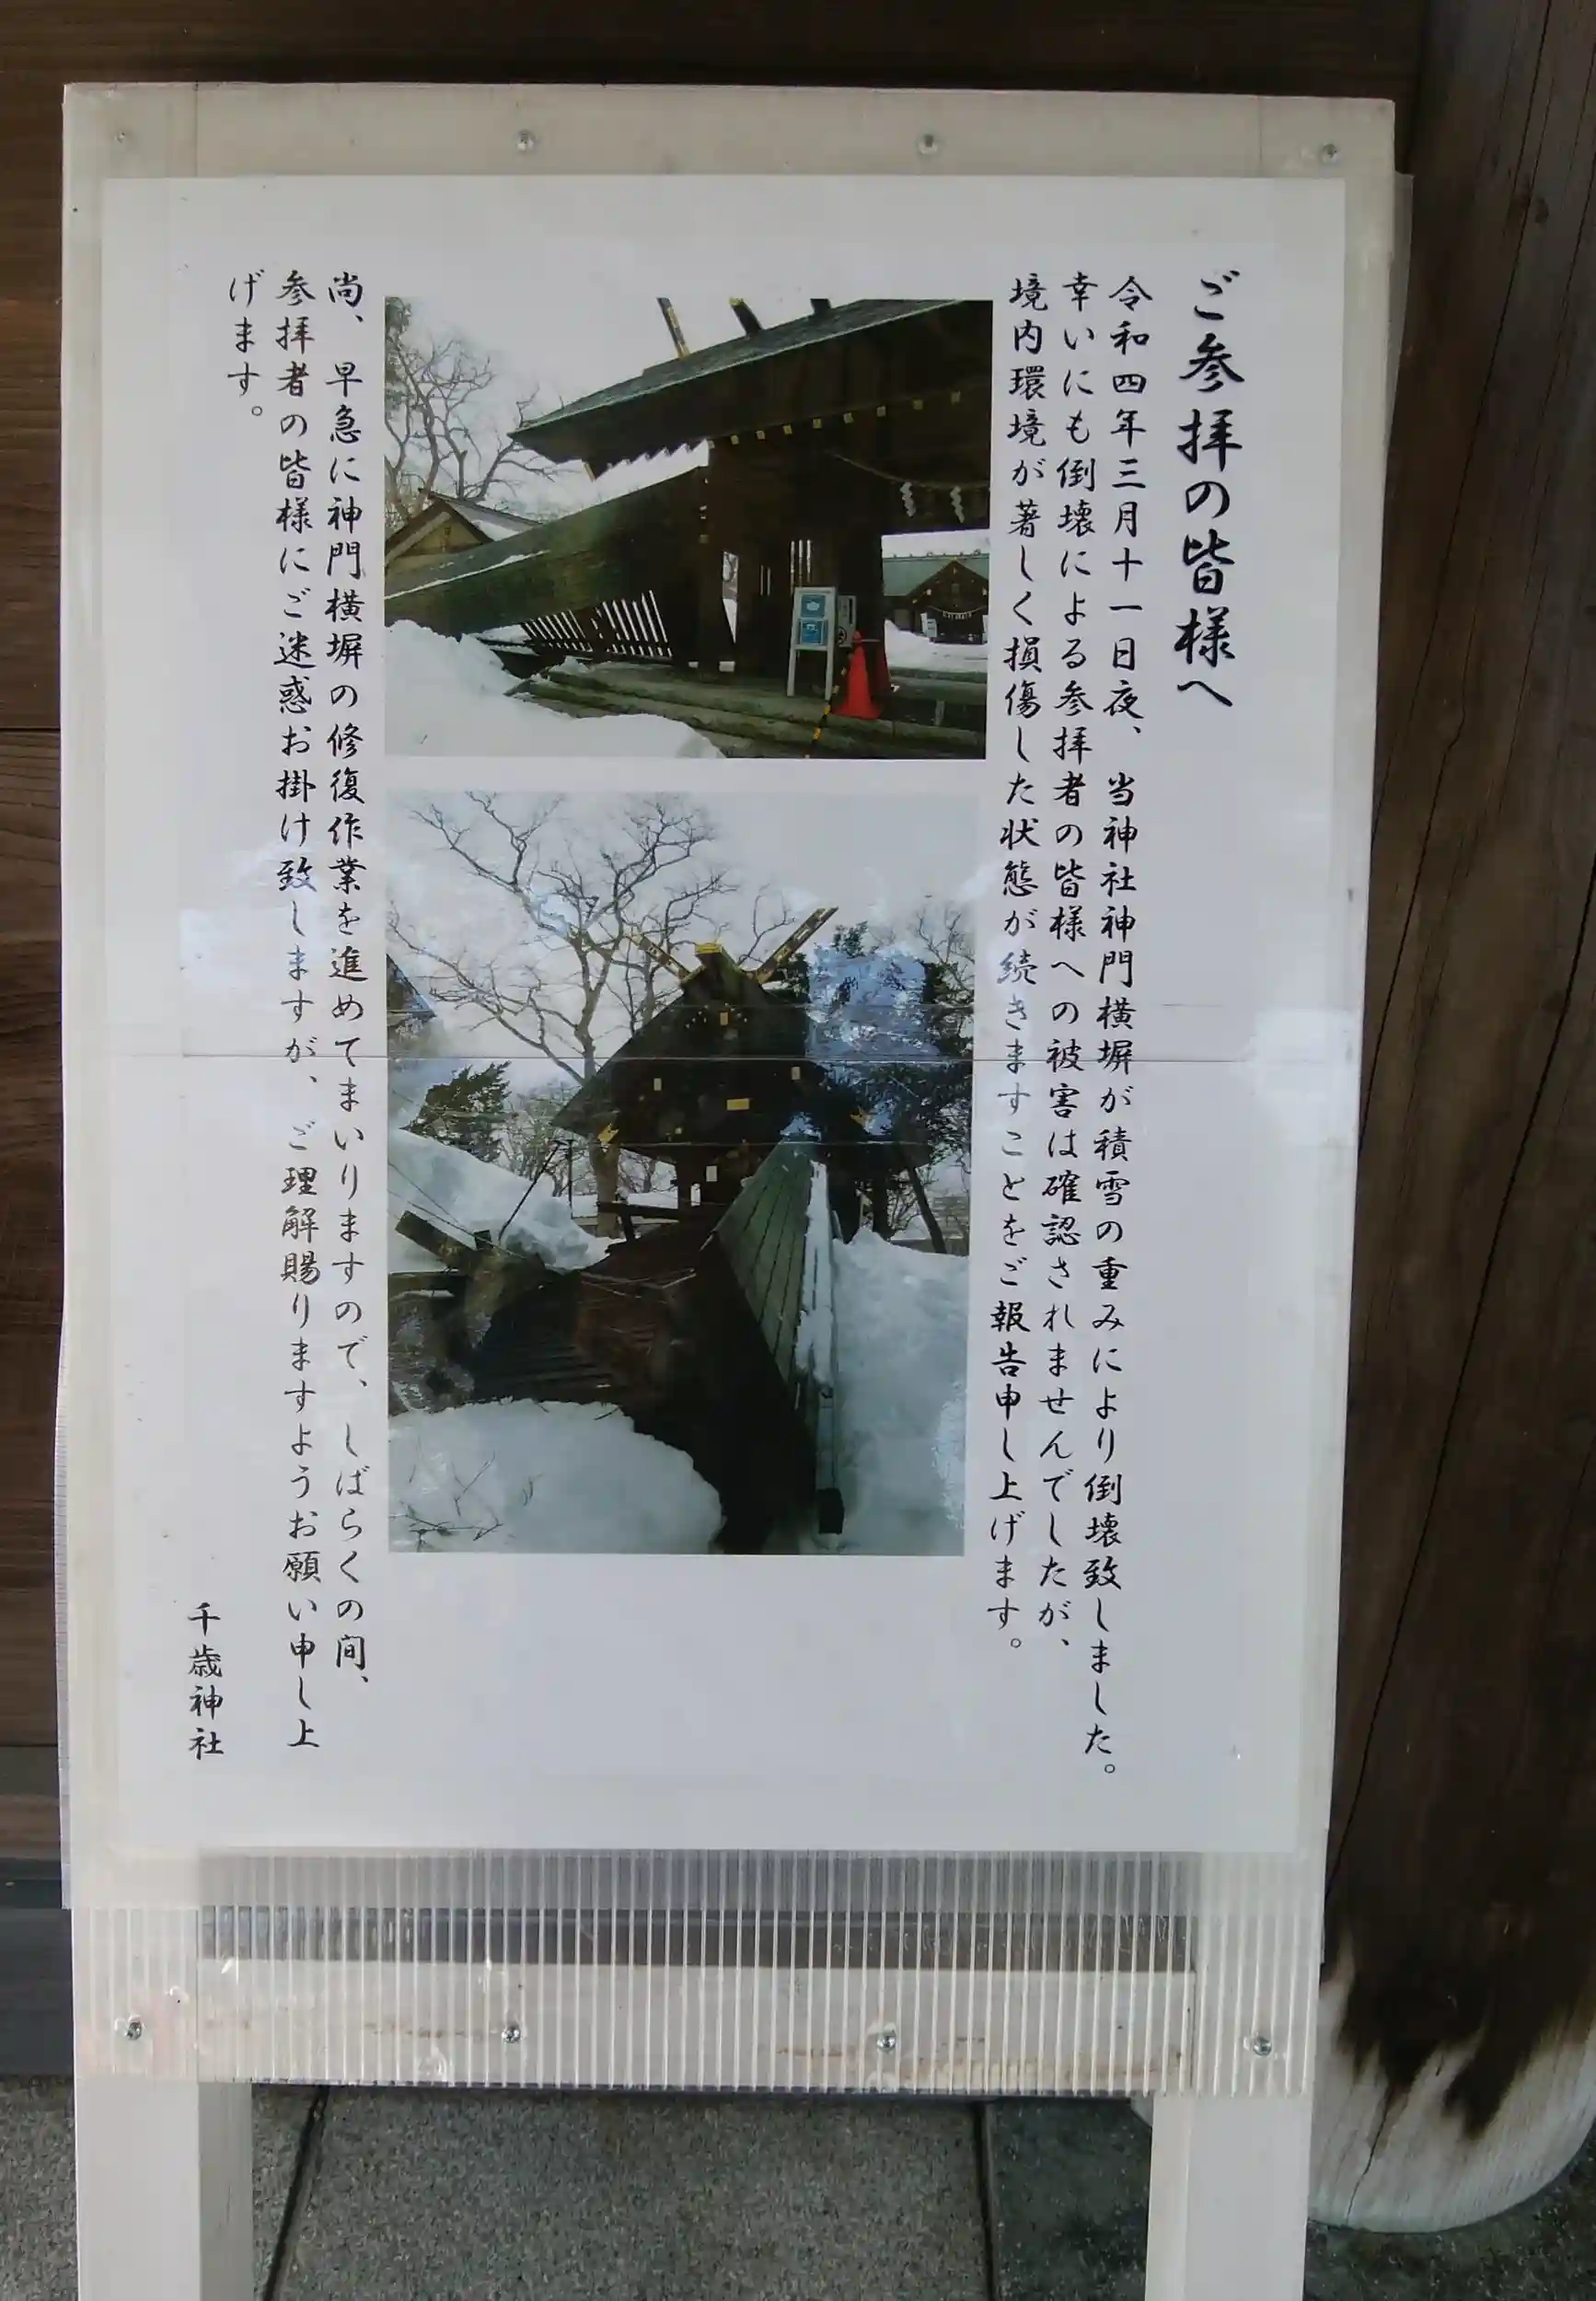 ご参拝の皆様へ
令和四年三月十一日夜、当神社神門横塀が積雪の重みにより倒壊致しました。
幸いにも倒壊による参拝者の皆様への被害は確認されませんでしたが、
境内環境が著しく損傷した状態が続きますことをご報告申し上げます。
尚、早急に神門横塀の修復作業を進めてまいりますので、しばらくの間、
参拝者の皆様にご迷惑お掛け致しますが、ご理解賜りますようお願い申し上
げます。
千歳神社